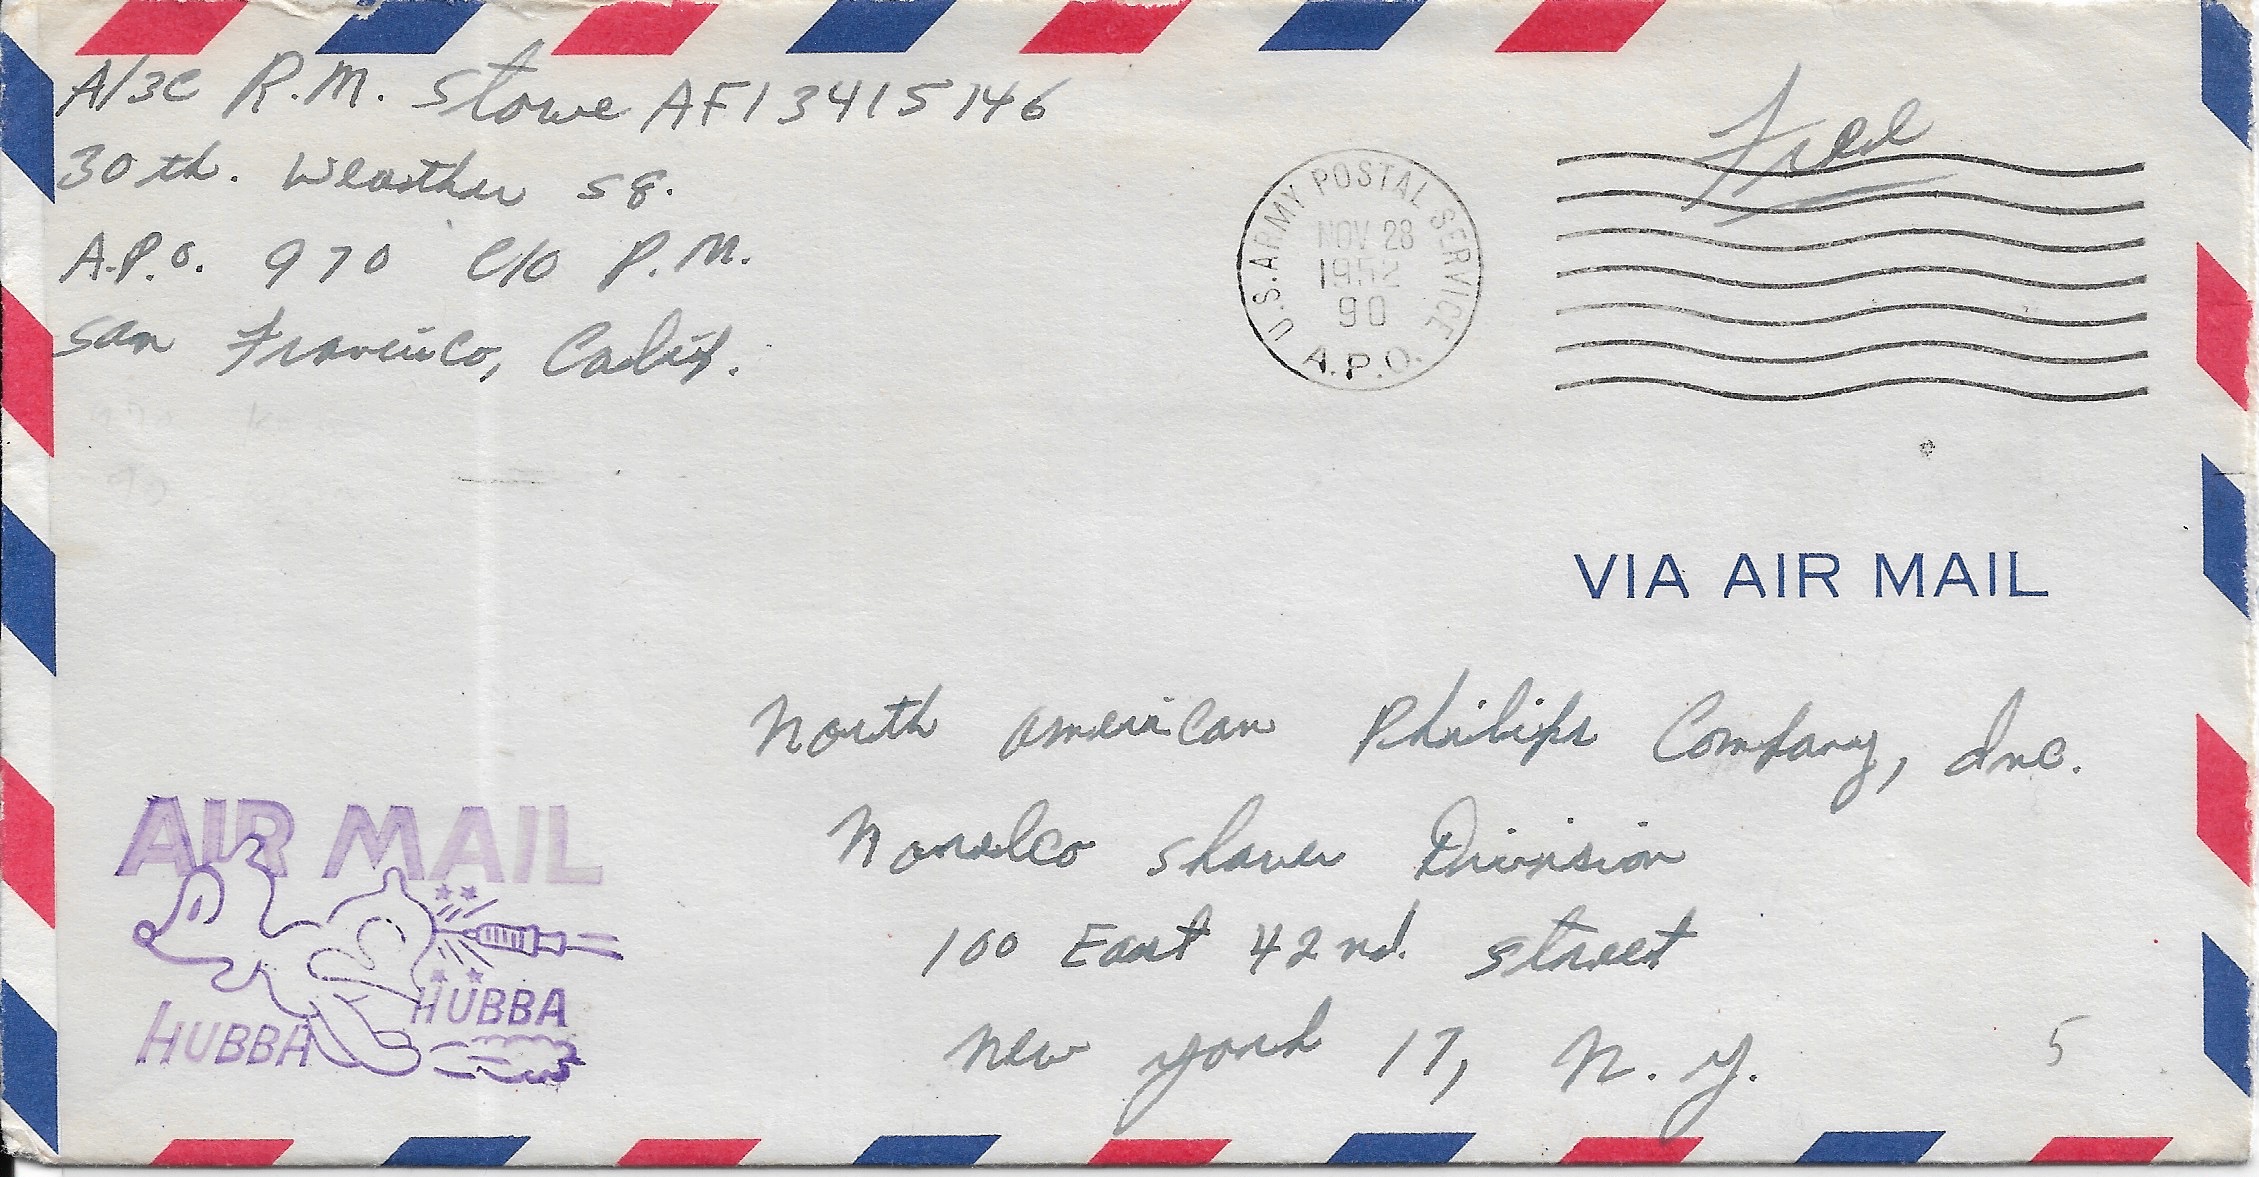 A/3C R.M. Stowe AF13415146
30th. Weather sq.
A.P.O. 970 C/O P.M.
San Francisco, Calif.
Free
U.S. ARMY POSTAL SERVICE
NOV 28
1952
90
A.P.O.
VIA AIR MAIL
North American Philips Company, Inc.
Norelco Shaver Division
100 East 42nd. Street
New York 17, N.Y.
5
AIR MAIL
HUBBA
HUBBA